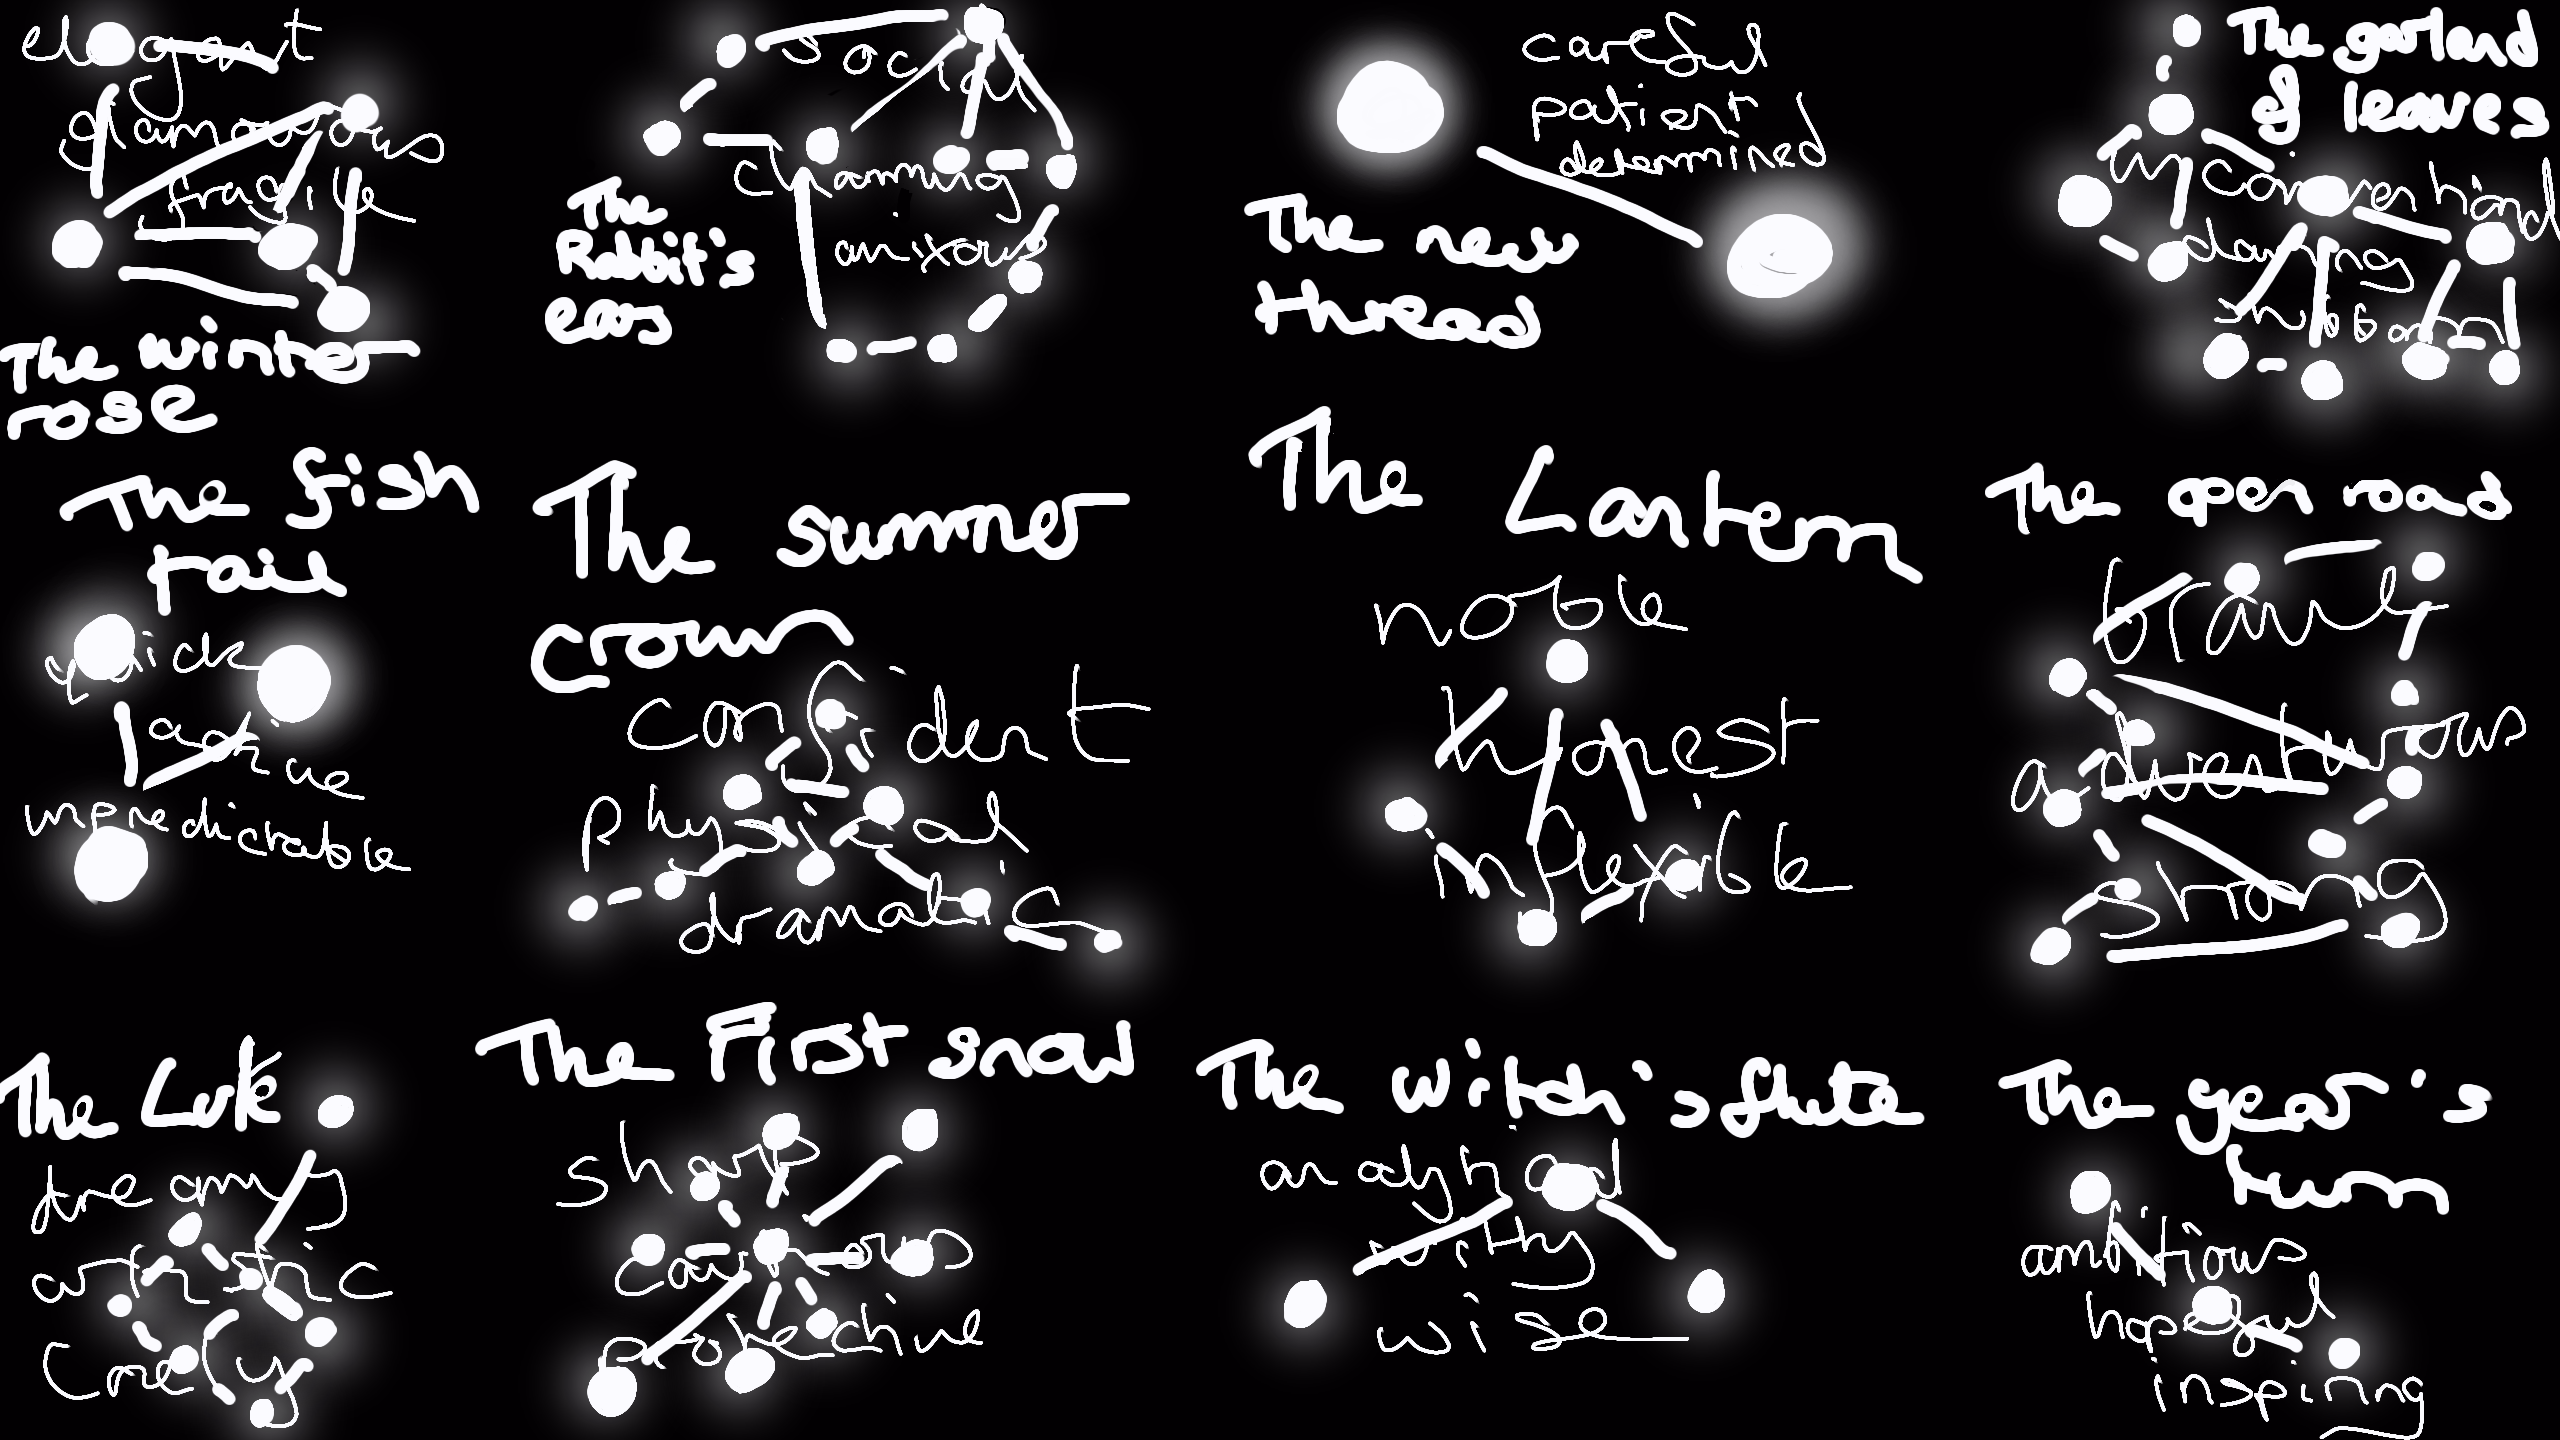 elegant
glamourous
fragile
The winter
rose
social
charming
anixous
The
Rabbit's
ears
careful
patient
determined
The new
thread
The garland
of leaves
unconvenhional
daring
stubborn
The fish
tail
quick
unpredictable
The summer
crown
confident
physical
dramatic
The Lantern
noble
honest
inflexible
The open road
brave
adventurous
strong
The Lute
dreamy
artistic
lonely
The First snow
sharp
cautious
protective
The witch's flute
analytical
withy
wise
The year's
turn
ambitious
hopeful
inspiring